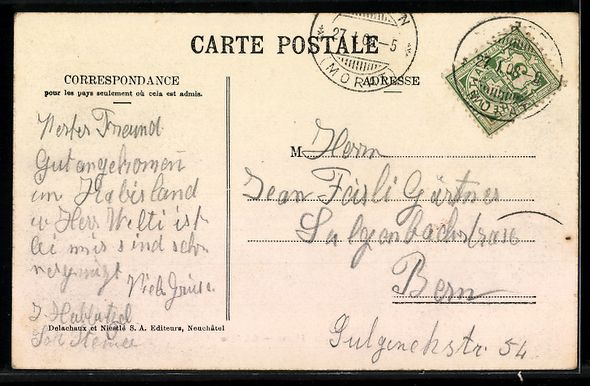 CARTE POSTALE
CORRESPONDANCE
pour les pays seulement où cela est admis.
ADRESSE
27. I. 08-5
(MORAT)
HELVETIA
Werter Freund
Gut angekomen
im
u Herr Welti ist
bei mir sind sehr
vergnügt
Viele Grüsse
J.
M Herrn
Jean Feisli Gärtner
Sulgenbachstrase
Bern
Sulgenekstr. 54
Delachaux et Niestlé S. A. Editeurs, Neuchâtel